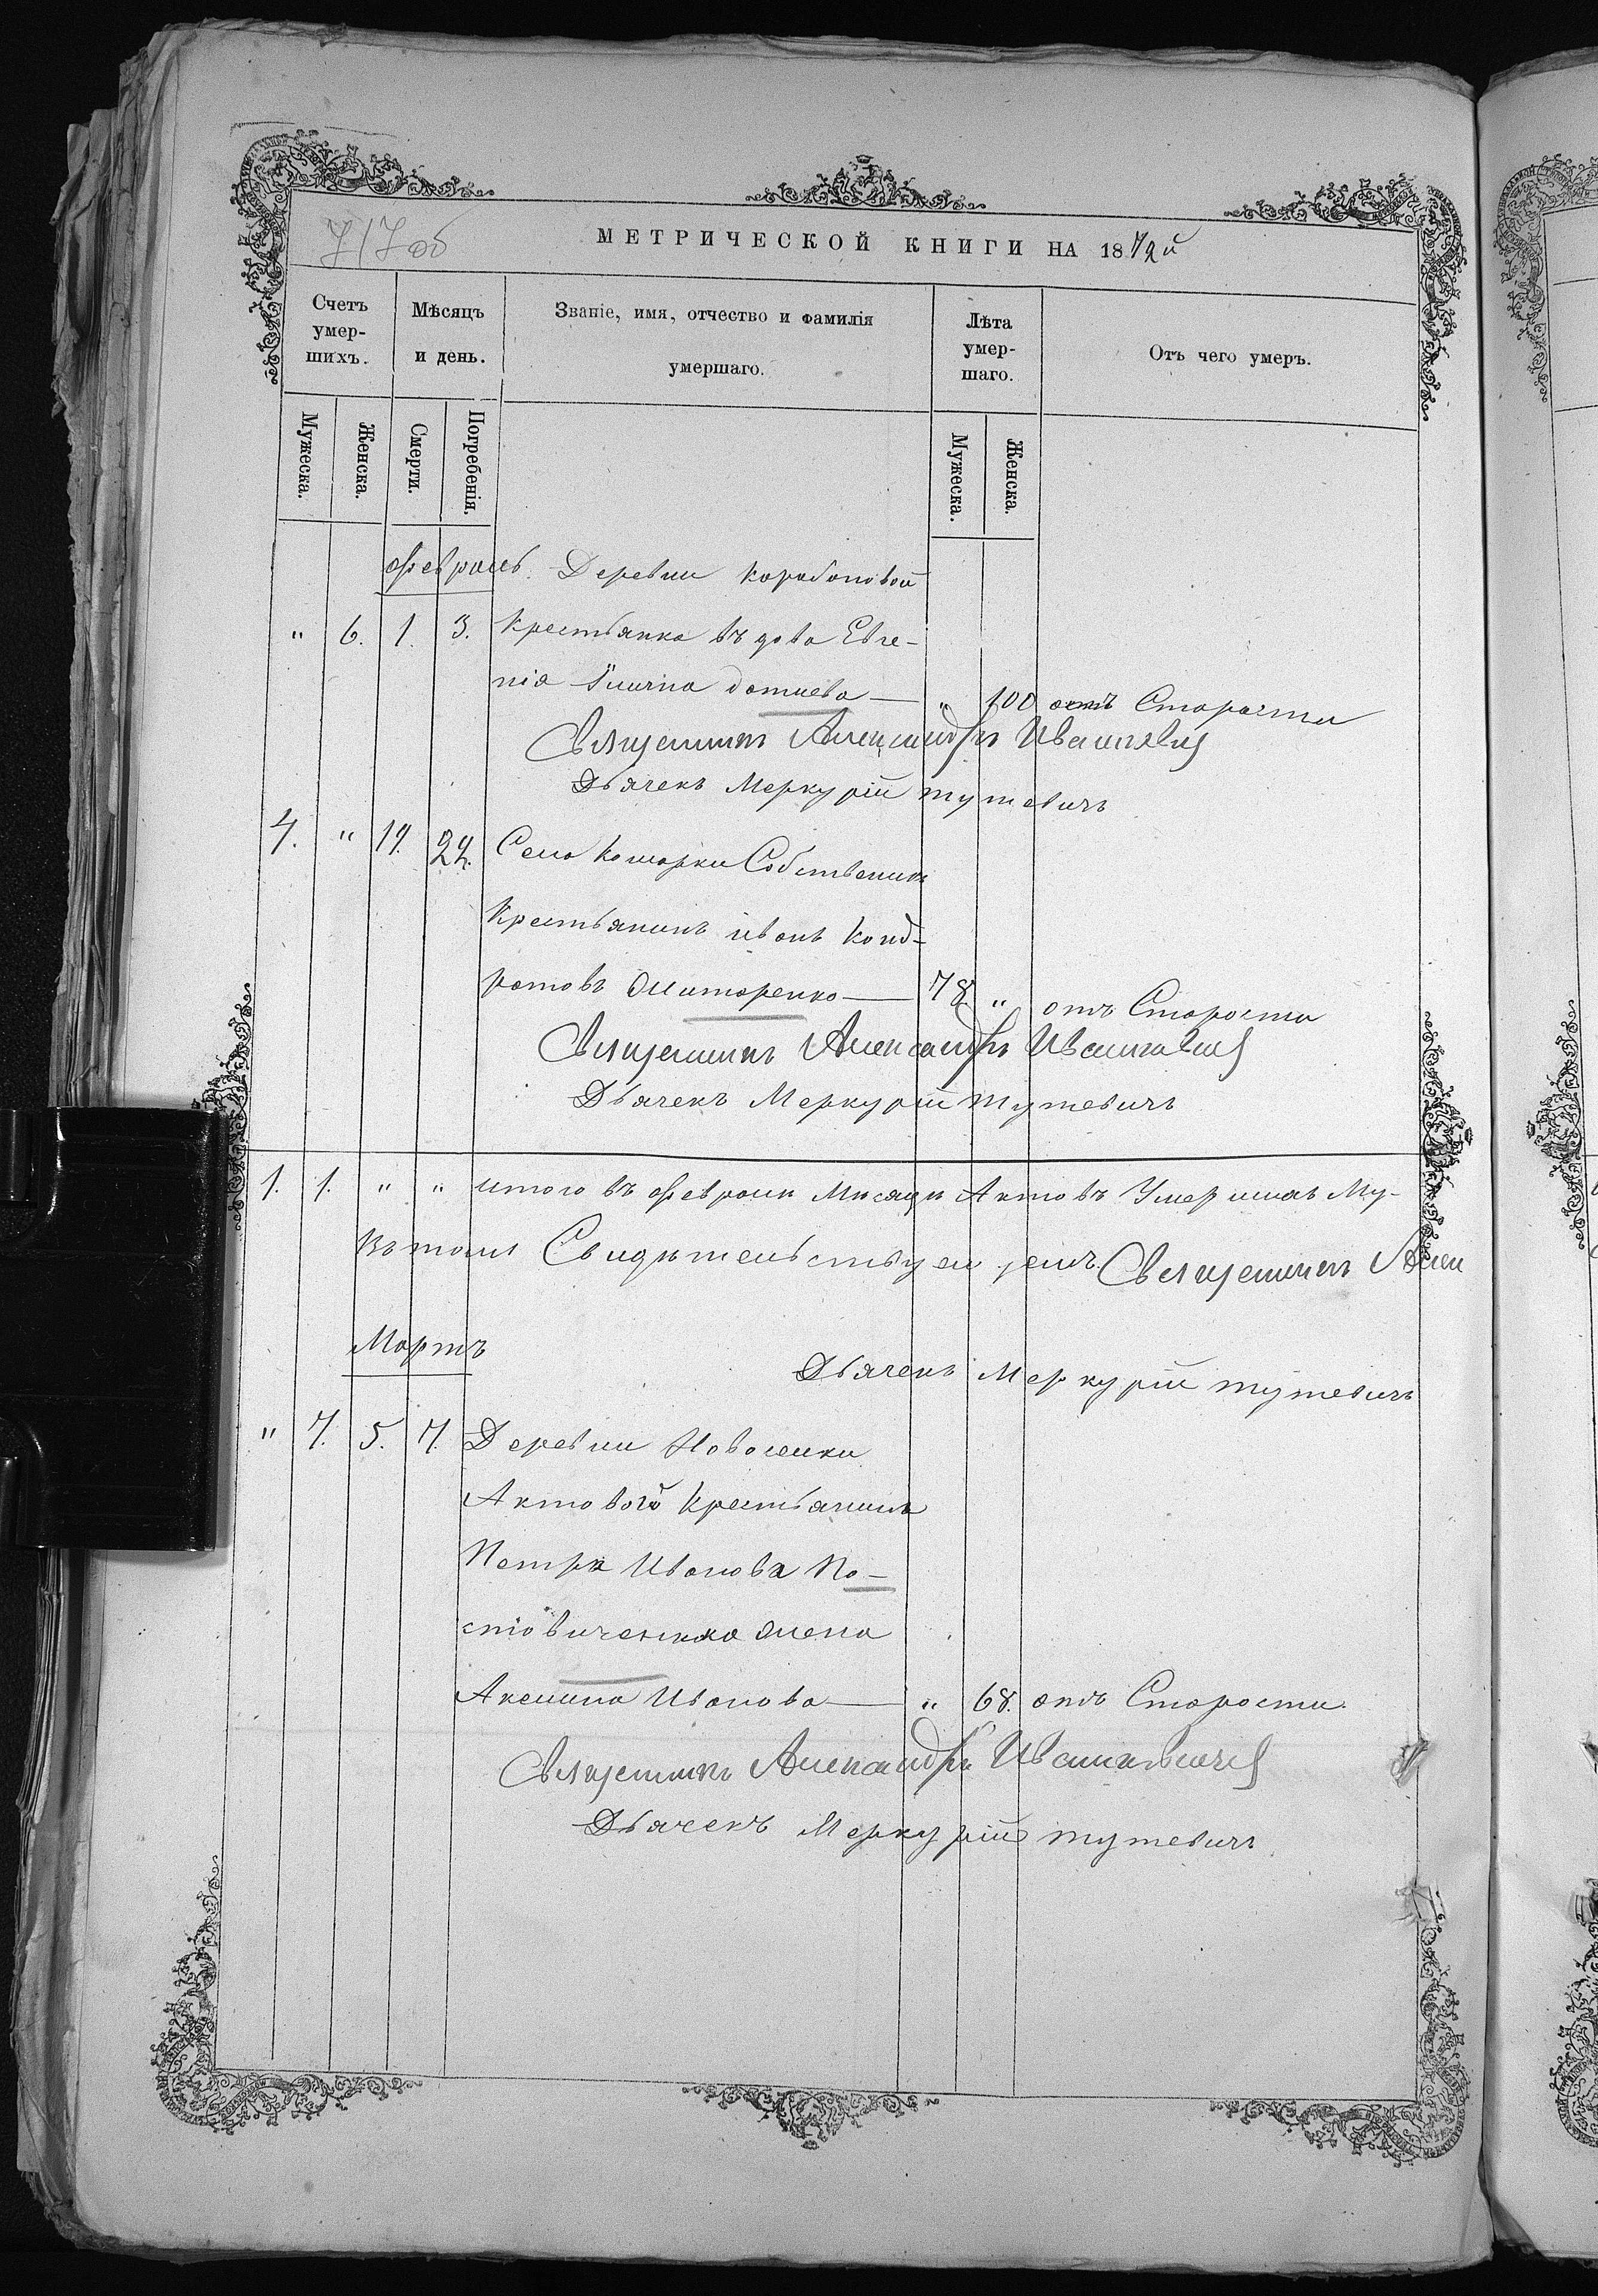 717об
МЕТРИЧЕСКОЙ КНИГИ НА 1872й
Счетъ умер-шихъ.
Мѣсяцъ и день.
Званіе, имя, отчество и фамилія умершаго.
Лѣта умер-шаго.
Отъ чего умеръ.
Мужеска. Женска. Смерти. Погребенія. Мужеска. Женска.
февраль. Деревни Кораблповой
" 6. 1. 3. Крестьянка вдова Евге-
нія " 100 отъ Старости
Священникъ Александръ Ивашкевич
Дьячекъ Меркурій тутевичъ
4. " 19. 22. Села Комарки Собственик
Крестьянинъ иванъ Конд-
ратовъ Титаренко — 78. " отъ Старости
Священникъ Александръ Ивашкевич
Дьячекъ Меркурій тутевичъ
1. 1. " " итого въ феврали Мисяци Актовъ Умершихъ Му-
Вътомъ Свидѣтельствуем Священникъ Алек
Мартъ
Дьячекъ Меркурій тутевичъ
" 7. 5. 7. Деревни Новоселки
Актового Крестьянина
Петра Иванова По-
стовиченка жена
Аксинна Иванова — " 68. отъ Старости
Священникъ Александръ Ивашкевич
Дьячекъ Меркурій тутевичъ